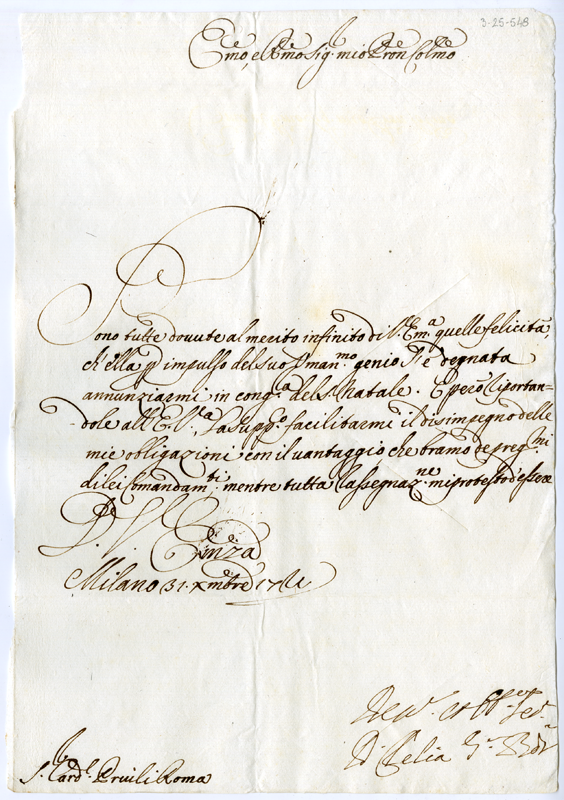 3-25-548
Emo, e Rmo Sig.r mio Pron Colmo
Sono tutte dovute al merito infinito di V. Em.a quelle felicità,
ch'ella p impulso del suo uman.mo genio s'è degnata
annunziarmi in cong.a del S. Natale. E però riportan=
dole all'E. V.a, la supp.o facilitarmi il disimpegno delle
mie obligazioni con il vantaggio che bramo de preg.mi
di lei Comandam.ti, mentre tutta rassegnaz.ne mi protesto d'essere
D. V. Emza
Milano 31. Xmbre
Dev. et Obb. Ser.
D. Clelia
S. Card.l Priuli Roma